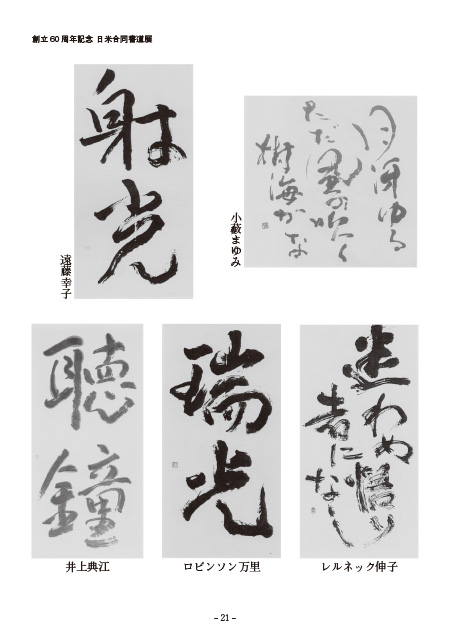 創立60周年記念 日米合同書道展
射光
遠藤幸子
月冴ゆる
ただ風の吹く
樹海かな
小薮まゆみ
聽鐘
井上典江
瑞光
ロビンソン万里
迷わぬ
者に悟り
なし
レルネック伸子
– 21 –